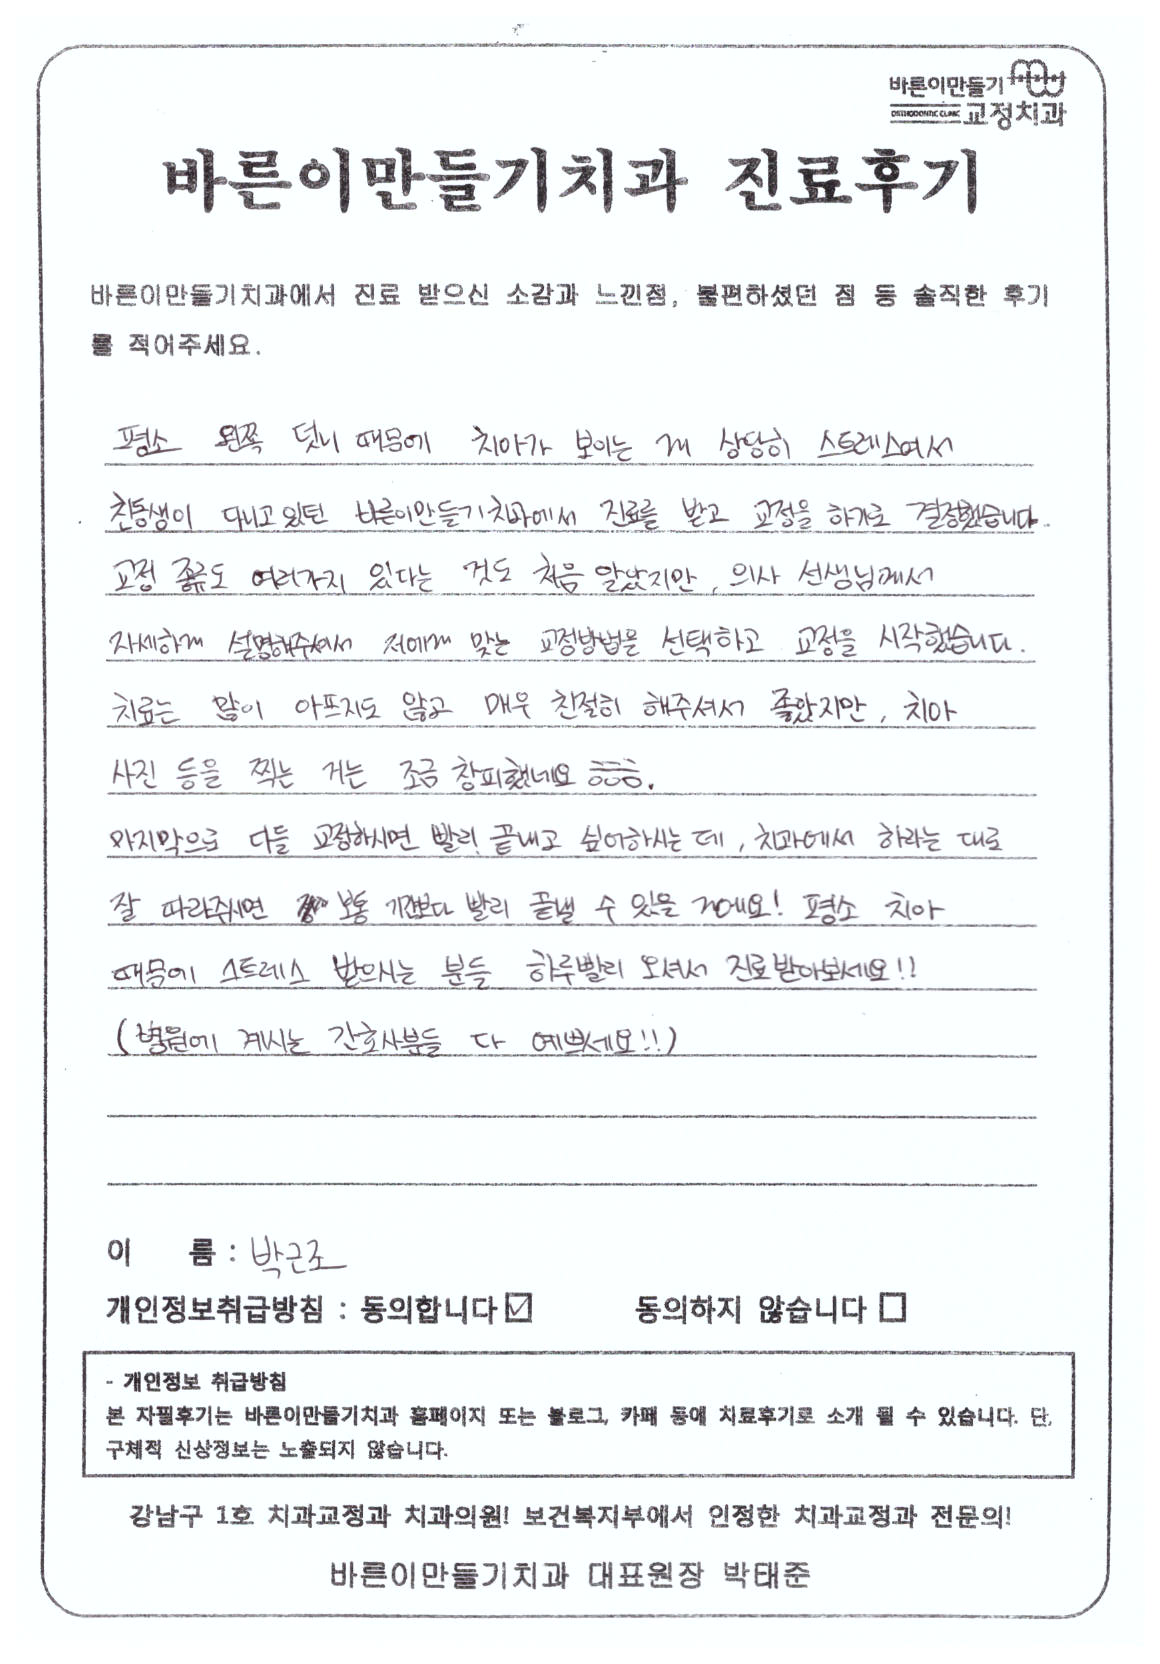 바른이만들기
ORTHODONTIC CLINIC 교정치과
바른이만들기치과 진료후기
바른이만들기치과에서 진료 받으신 소감과 느낀점, 불편하셨던 점 등 솔직한 후기
를 적어주세요.
평소 왼쪽 덧니 때문에 치아가 보이는 게 상당히 스트레스여서
친동생이 다니고 있던 바른이만들기치과에서 진료를 받고 교정을 하기로 결정했습니다.
교정 종류도 여러가지 있다는 것도 처음 알았지만, 의사 선생님께서
자세하게 설명해주셔서 저에게 맞는 교정방법을 선택하고 교정을 시작했습니다.
치료는 많이 아프지도 않고 매우 친절히 해주셔서 좋았지만, 치아
사진 등을 찍는 거는 조금 창피했네요 ㅎㅎㅎ.
마지막으로 다들 교정하시면 빨리 끝내고 싶어하시는 데, 치과에서 하라는 대로
잘 따라주시면 보통 기간보다 빨리 끝낼 수 있을 거에요! 평소 치아
때문에 스트레스 받으시는 분들 하루빨리 오셔서 진료받아보세요!!
(병원에 계시는 간호사분들 다 예쁘세요!!)
이 름 : 박근조
개인정보취급방침 : 동의합니다 ☑ 동의하지 않습니다 ☐
- 개인정보 취급방침
본 자필후기는 바른이만들기치과 홈페이지 또는 블로그, 카페 등에 치료후기로 소개 될 수 있습니다. 단,
구체적 신상정보는 노출되지 않습니다.
강남구 1호 치과교정과 치과의원! 보건복지부에서 인정한 치과교정과 전문의!
바른이만들기치과 대표원장 박태준